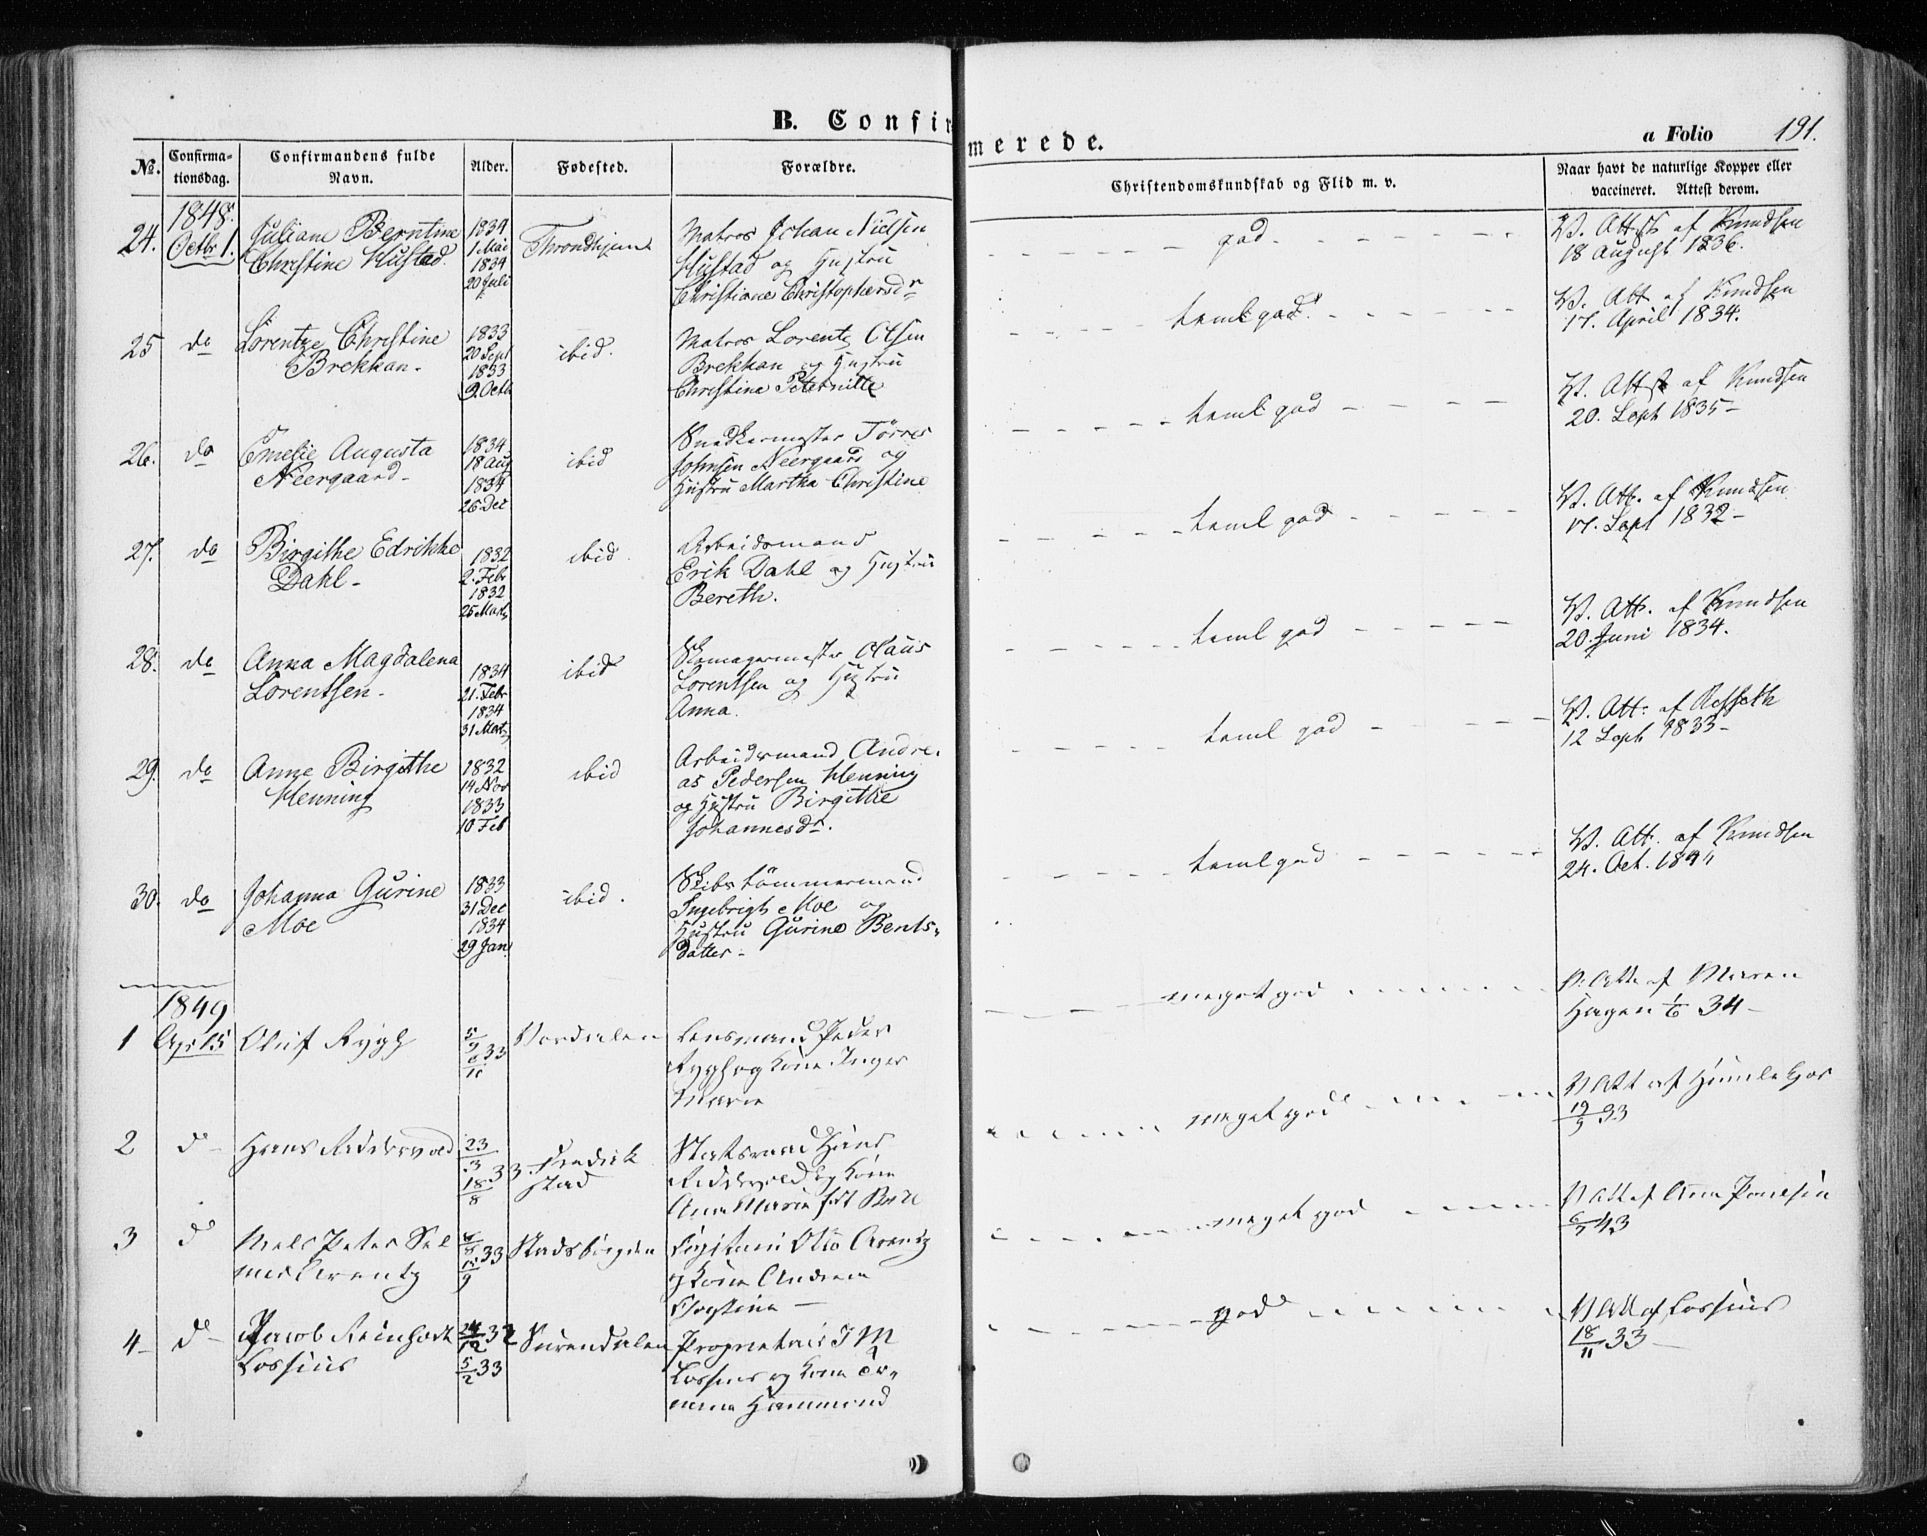 B. Confirmerede.
a Folio 191.
No.
Confirmationsdag.
Confirmandens fulde Navn.
Alder.
Fødested.
Forældre.
Christendomskundskab og Flid m. v.
Naar havt de naturlige Kopper eller vaccineret. Attest derom.
1848.
24. Octbr 1. Juliane Berntine
Christine Hustad.
1834
1 Mai
1834
20 Juli
Throndhjem
Matros Johan Nielsen
Hustad og Hustru
Christiane Christophersdr
god
V. Attst. af Knudsen
18 August 1836.
25 do Lorentze Christine
Brekkan.
1833
20 Sept
1833
9. Octb
ibid.
Matros Lorentz Olsen
Brekkan og Hustru
Christine Peternille
teml god
V. Att. af Knudsen
17. April 1834.
26. do Emelie Augusta
Neergaard
1834
18 Aug
1834
26 Dec
ibid
Snedkermester Tørres
Johnsen Neergaard og
Hustru Martha Christine
teml god
V. Attst af Knudsen
20. Sept 1835
27. do Birgithe Edrikke
Dahl
1832
2. Febr
1832
25 Marts
ibid.
Arbeidsmand
Erik Dahl og Hustru
Bereth.
teml god
V. Att. af Knudsen
17. Sept 1832
28. do Anna Magdalena
Lorentsen
1834
21. Febr
1834
31 Marts
ibid
Skomagermester Claus
Lorentsen og Hustru
Anna.
teml god
V. Att. af Knudsen
20. Juni 1834.
29. do Anne Birgithe
Henning
1832
14 Nov
1833
10 Feb
ibid
Arbeidsmand Andre-
as Pedersen Henning
og Hustru Birgithe
Johannesdr.
teml god
V. Att. af
12 Sept 1833
30. do Johanna Gurine
Moe
1833
31 Dec
1834
29 Jan
ibid.
Skibstømmermand
Ingebrigt Moe og
Hustru Gurine Bents-
datter
teml god
V. Att. af Knudsen
24. Oct.
1849
1 Apr 15 Oluf Rygh
5/9 33
Værdalen
Lensmand Peder
Rygh og Kone Inger
Marie
meget god
V. Att af Maren
Hagen 34
2 do Hans Riddervold
23/3 33
18/8
Fredrik
stad
Statsraad Hans
Riddervold og Kone
Ane Marie født Bull
meget god
V Att af
19/9 33
3 do Niels Peter Sel
mer Arentz
33
Stadsbygden
Capitain Otto Arentz
og Kone Andrea
meget god
V Att af Ane Poulsen
6/7 43
4 do Jacob Reinholdt
Lossius
32
5/2 33
Surendalen
Proprietair J M
Lossius og Kone
Hammond
god
V Att af Lossius
18/11 33